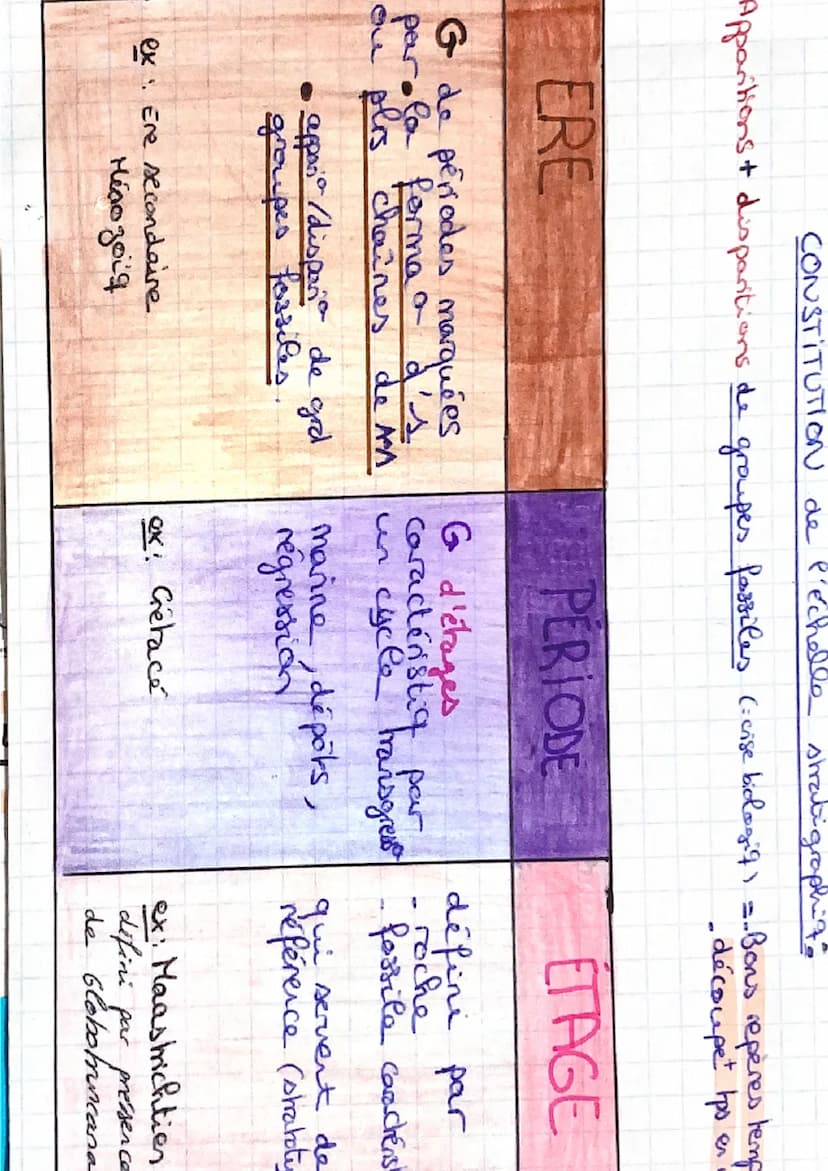 CONSTITUTION de l'échelle stratigraphiq.
Apparitions + disparitions de groupes fossiles (= crise biologiq) = . Bons repères temp
. découpet tps en
ERE
G de périodes marquées
par • la forma° d'1
ou plrs chaînes de
• appari°/dispari° de grd
groupes fossiles.
ex : Ere secondaire
Mésozoïq
PÉRIODE
G d'étages
caractéristiq par
un cycle transgress°
marine, dépôts,
régression
ex : Crétacé
ÉTAGE
défini par
- roche
- fossile caractéris
qui servent de
référence (stratoty
ex : Maastrichtien
défini par présence
de Globotruncana